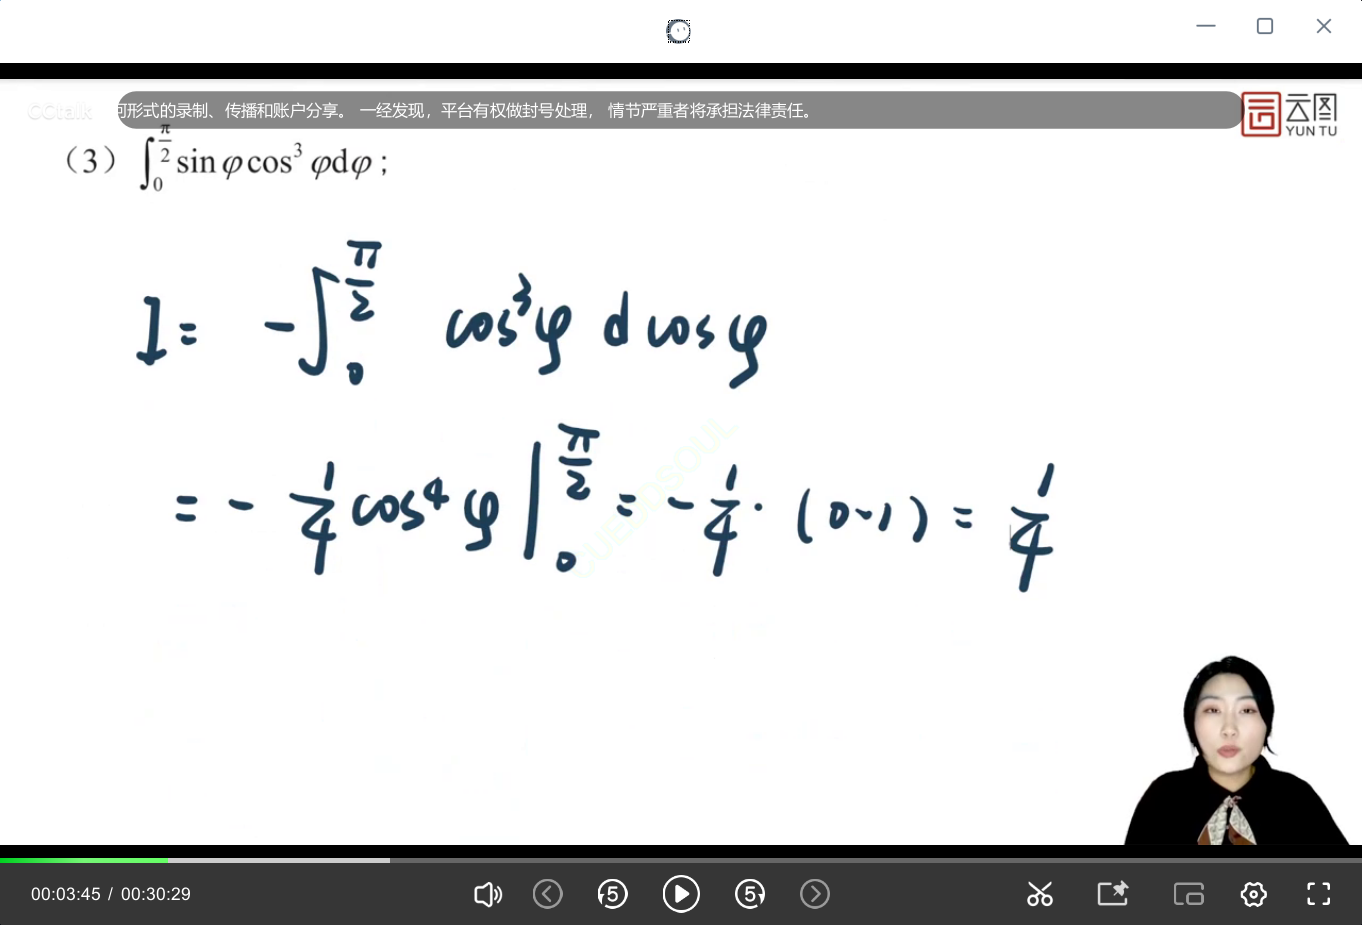 CCtalk
何形式的录制、传播和账户分享。 一经发现，平台有权做封号处理， 情节严重者将承担法律责任。
云图
YUN TU
（3）∫₀^{π/2} sin φ cos³ φdφ ;
I = -∫₀^{π/2} cos³φ d cosφ
= - 1/4 cos⁴ φ |₀^{π/2} = - 1/4 · (0-1) = 1/4
CUEBDSOUL
00:03:45 / 00:30:29
5
5